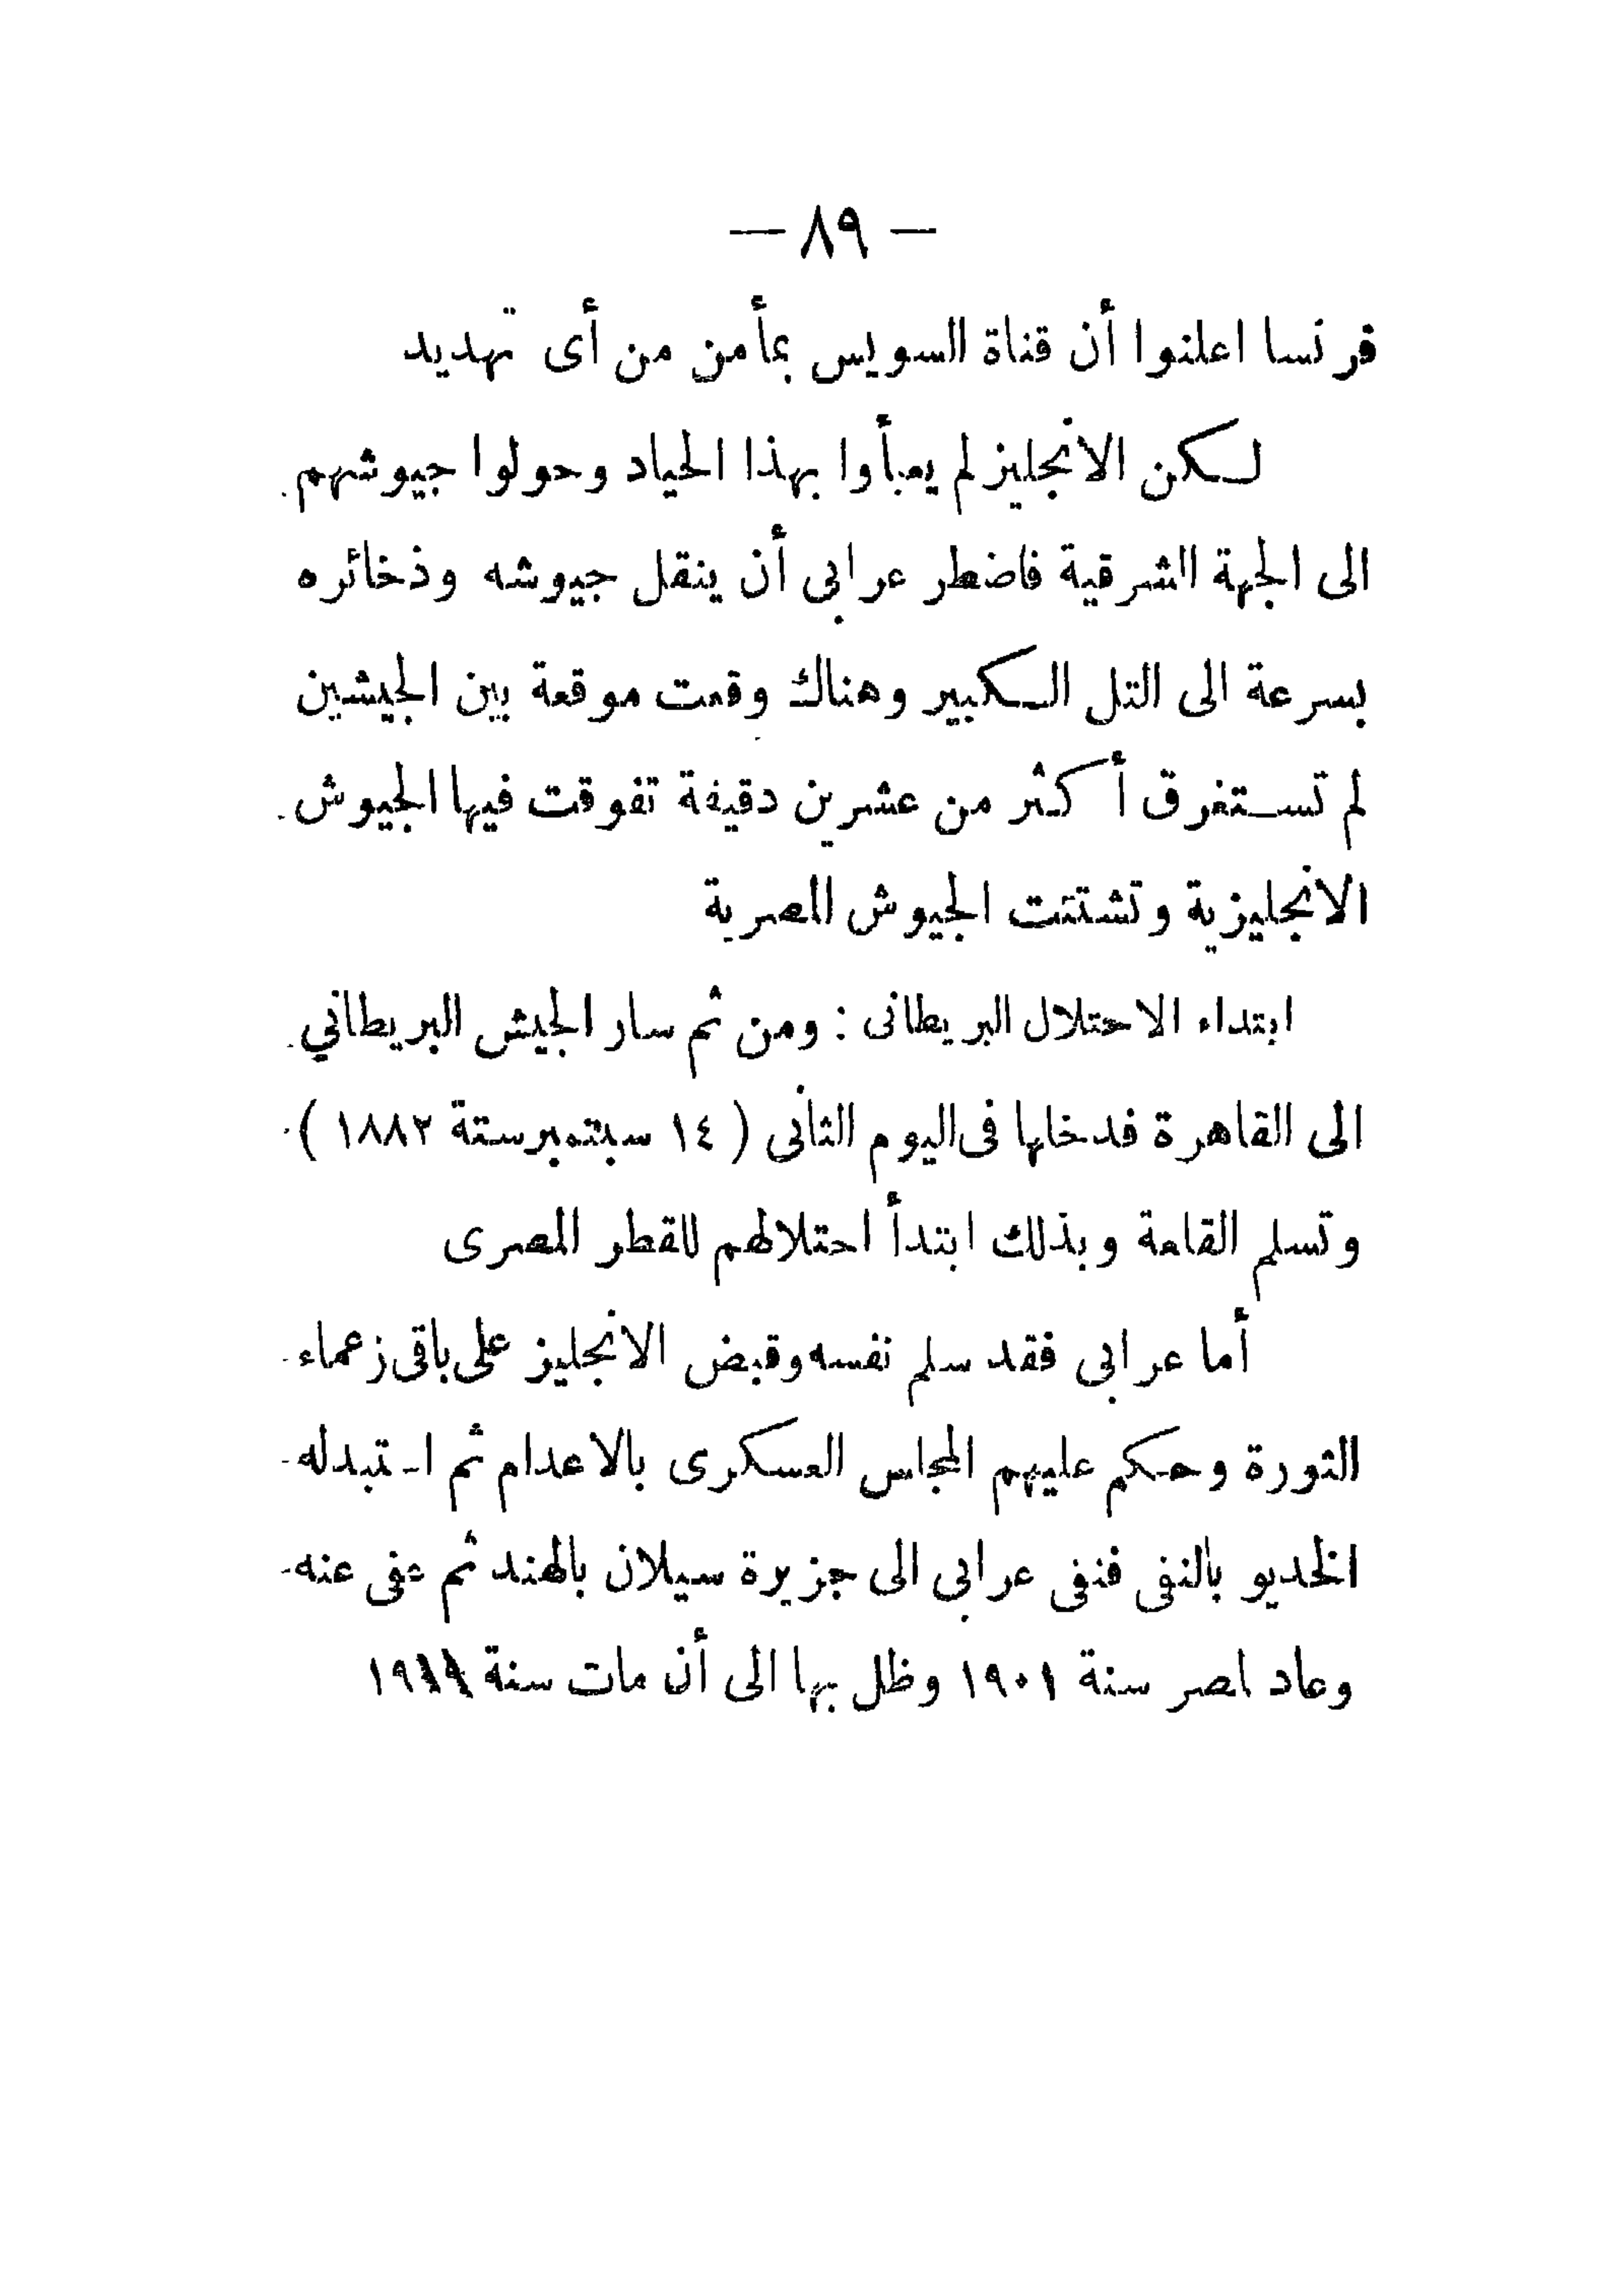 — ٨٩ —
فرنسا اعلنوا أن قناة السويس بمأمن من أى تهديد
لكن الانجليز لم يعبأوا بهذا الحياد وحولوا جيوشهم
الى الجهة الشرقية فاضطر عرابى أن ينقل جيوشه وذخائره
بسرعة الى التل الكبير وهناك وقعت موقعة بين الجيشين
لم تستغرق أكثر من عشرين دقيقة تفوقت فيها الجيوش
الانجليزية وتشتتت الجيوش المصرية
ابتداء الاحتلال البريطانى : ومن ثم سار الجيش البريطاني
الى القاهرة فدخلها فى اليوم الثانى ( ١٤ سبتمبر ستة ١٨٨٢ )
وتسلم القلعة وبذلك ابتدأ احتلالهم للقطر المصرى
أما عرابى فقد سلم نفسه وقبض الانجليز على باقى زعماء
الثورة وحكم عليهم المجلس العسكرى بالاعدام ثم استبدله
الخديو بالنفى فنفى عرابى الى جزيرة سيلان بالهند ثم عفى عنه
وعاد لمصر سنة ١٩٠١ وظل بها الى أن مات سنة ١٩١١